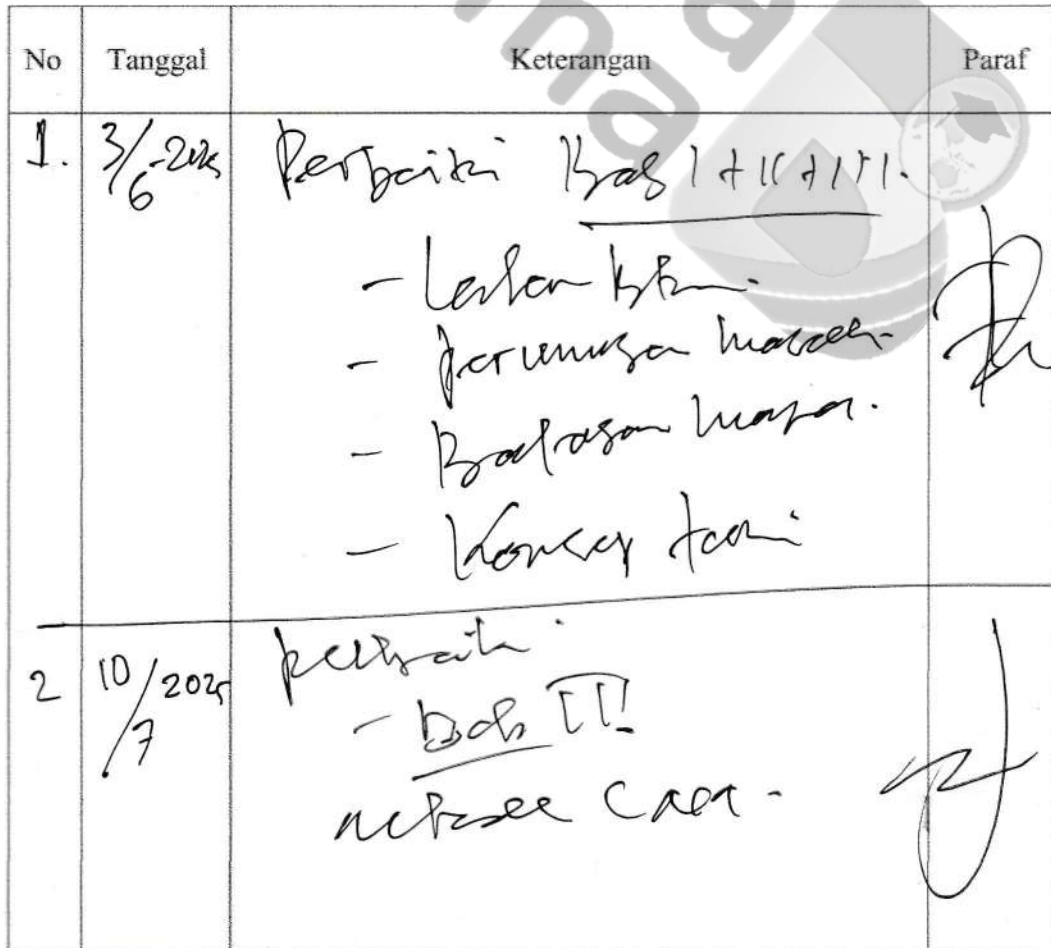 No Tanggal Keterangan Paraf
1. 3/6-2025 Perbaiki Bab I + II + III.
- Latar
- perumusan masalah.
- Batasan masalah.
- Konsep teori
2 10/7 2025 perbaiki
- bab III